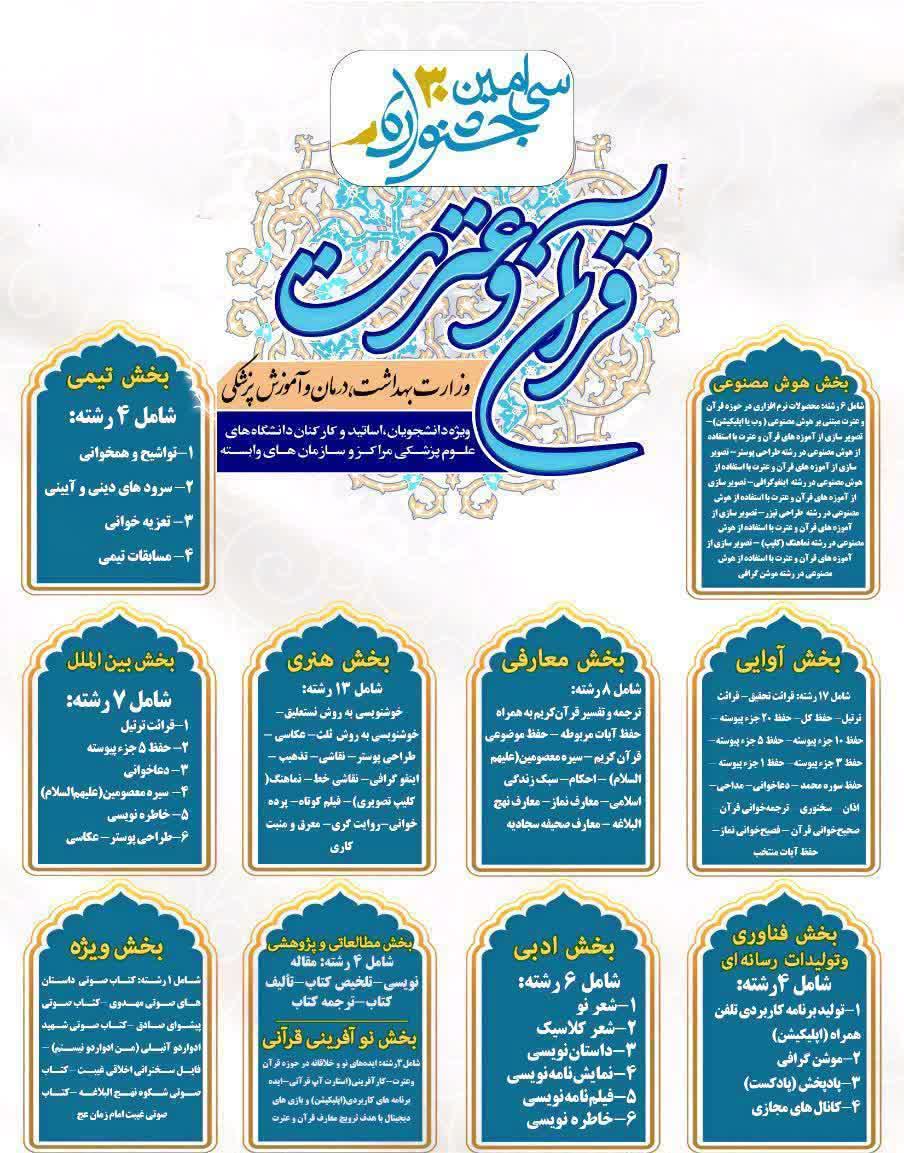 سی امین ۳۰
جشنواره
قرآن و عترت
وزارت بهداشت، درمان و آموزش پزشکی
ویژه دانشجویان، اساتید و کارکنان دانشگاه های
علوم پزشکی مراکز و سازمان های وابسته
بخش هوش مصنوعی
شامل ۶ رشته: محصولات نرم افزاری در حوزه قرآن
و عترت مبتنی بر هوش مصنوعی ( وب یا اپلیکیشن) –
تصویر سازی از آموزه های قرآن و عترت با استفاده
از هوش مصنوعی در رشته طراحی پوستر – تصویر
سازی از آموزه های قرآن و عترت با استفاده از
هوش مصنوعی در رشته اینفوگرافی – تصویر سازی
از آموزه های قرآن و عترت با استفاده از هوش
مصنوعی در رشته طراحی تیزر – تصویر سازی از
آموزه های قرآن و عترت با استفاده از هوش
مصنوعی در رشته نماهنگ (کلیپ) – تصویر سازی از
آموزه های قرآن و عترت با استفاده از هوش
مصنوعی در رشته موشن گرافی
بخش تیمی
شامل ۴ رشته:
۱- تواشیح و همخوانی
۲- سرود های دینی و آیینی
۳- تعزیه خوانی
۴- مسابقات تیمی
بخش آوایی
شامل ۱۷ رشته: قرائت تحقیق – قرائت
ترتیل – حفظ کل – حفظ ۲۰ جزء پیوسته –
حفظ ۱۰ جزء پیوسته – حفظ ۵ جزء پیوسته –
حفظ ۳ جزء پیوسته – حفظ ۱ جزء پیوسته –
حفظ سوره محمد – دعاخوانی – مداحی –
اذان سخنوری ترجمه‌خوانی قرآن
صحیح‌خوانی قرآن – فصیح‌خوانی نماز –
حفظ آیات منتخب
بخش معارفی
شامل ۸ رشته:
ترجمه و تفسیر قرآن کریم به همراه
حفظ آیات مربوطه – حفظ موضوعی
قرآن کریم – سیره معصومین(علیهم
السلام) – احکام – سبک زندگی
اسلامی – معارف نماز – معارف نهج
البلاغه – معارف صحیفه سجادیه
بخش هنری
شامل ۱۳ رشته:
خوشنویسی به روش نستعلیق –
خوشنویسی به روش ثلث – عکاسی –
طراحی پوستر – نقاشی – تذهیب –
اینفو گرافی – نقاشی خط – نماهنگ(
کلیپ تصویری) – فیلم کوتاه – پرده
خوانی – روایت گری – معرق و منبت
کاری
بخش بین الملل
شامل ۷ رشته:
۱- قرائت ترتیل
۲- حفظ ۵ جزء پیوسته
۳- دعاخوانی
۴- سیره معصومین(علیهم السلام)
۵- خاطره نویسی
۶- طراحی پوستر – عکاسی
بخش فناوری
و تولیدات رسانه ای
شامل ۴ رشته:
۱- تولید برنامه کاربردی تلفن
همراه (اپلیکیشن)
۲- موشن گرافی
۳- پادپخش (پادکست)
۴- کانال های مجازی
بخش ادبی
شامل ۶ رشته:
۱- شعر نو
۲- شعر کلاسیک
۳- داستان نویسی
۴- نمایش نامه نویسی
۵- فیلم نامه نویسی
۶- خاطره نویسی
بخش مطالعاتی و پژوهشی
شامل ۴ رشته: مقاله
نویسی – تلخیص کتاب – تألیف
کتاب – ترجمه کتاب
بخش نو آفرینی قرآنی
شامل ۳ رشته: ایده‌های نو و خلاقانه در حوزه قرآن
و عترت – کارآفرینی(استارت آپ قرآنی – ایده
برنامه های کاربردی(اپلیکیشن) و بازی های
دیجیتال با هدف ترویج معارف قرآن و عترت
بخش ویژه
شامل ۱ رشته: کتاب صوتی داستان
های صوتی مهدوی – کتاب صوتی
پیشوای صادق – کتاب صوتی شهید
ادواردو آنیلی (من ادواردو نیستم) –
فایل سخنرانی اخلاقی غیبت – کتاب
صوتی شکوه نهج البلاغه – کتاب
صوتی غیبت امام زمان عج